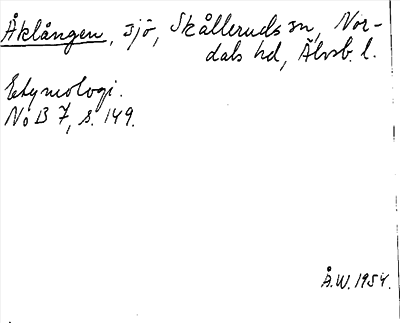 Åklången, sjö, Skålleruds sn, Nor-
dals hd, Älvsb. l.
Etymologi.
NoB 7, s. 149.
Å.W. 1954.